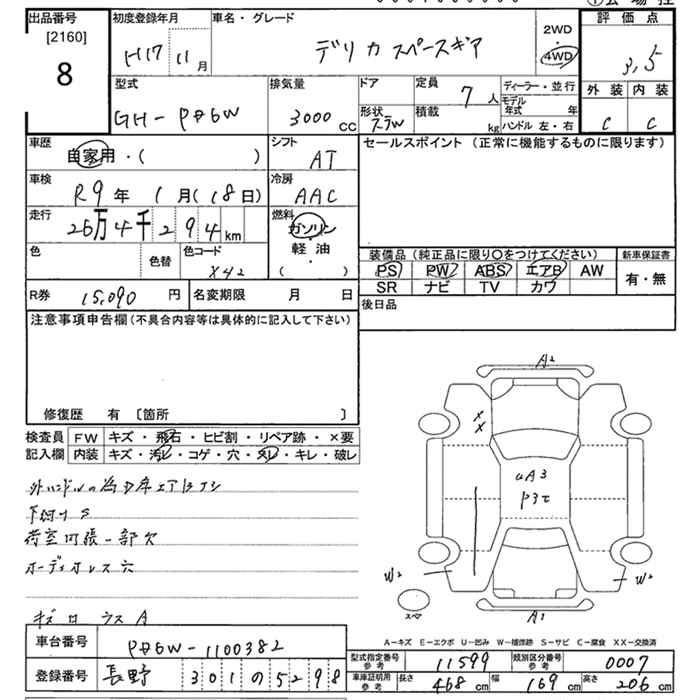 出品番号
[2160]
8
初度登録年月
H17 11月
車名・グレード
デリカスペースギア
2WD
・
4WD
評価点
3,5
外装 内装
C C
型式
GH-PD6W
排気量
3000 CC
ドア
形状
定員 7人
積載 kg
ディーラー・並行
モデル年式 年
ハンドル 左・右
車歴
自家用・( )
シフト
AT
セールスポイント (正常に機能するものに限ります)
車検
R9年 1月(18日)
冷房
AAC
走行
26万4千294km
燃料
ガソリン
・
軽油
( )
色
色替
色コード
X42
装備品 (純正品に限り○をつけてください)
PS PW ABS エアB AW
SR ナビ TV カワ
新車保証書
有・無
R券 15,090円
名変期限 月 日
後日品
注意事項申告欄(不具合内容等は具体的に記入して下さい)
修復歴 有 〔箇所 〕
検査員記入欄
FW キズ・飛石・ヒビ割・リペア跡・×要
内装 キズ・汚レ・コゲ・穴・スレ・キレ・破レ
下回りS
荷室内張一部欠
オーディオレス穴
A2
XX
W2
W2
A1
スペア
A－キズ E－エクボ U－凹み W－補修跡 S－サビ C－腐食 XX－交換済
車台番号
PD6W-1100382
登録番号
長野 301 の 5298
型式指定番号
参考
11599
類別区分番号
参考
0007
車庫証明用
参考
長さ 468cm
幅 169cm
高さ 206cm